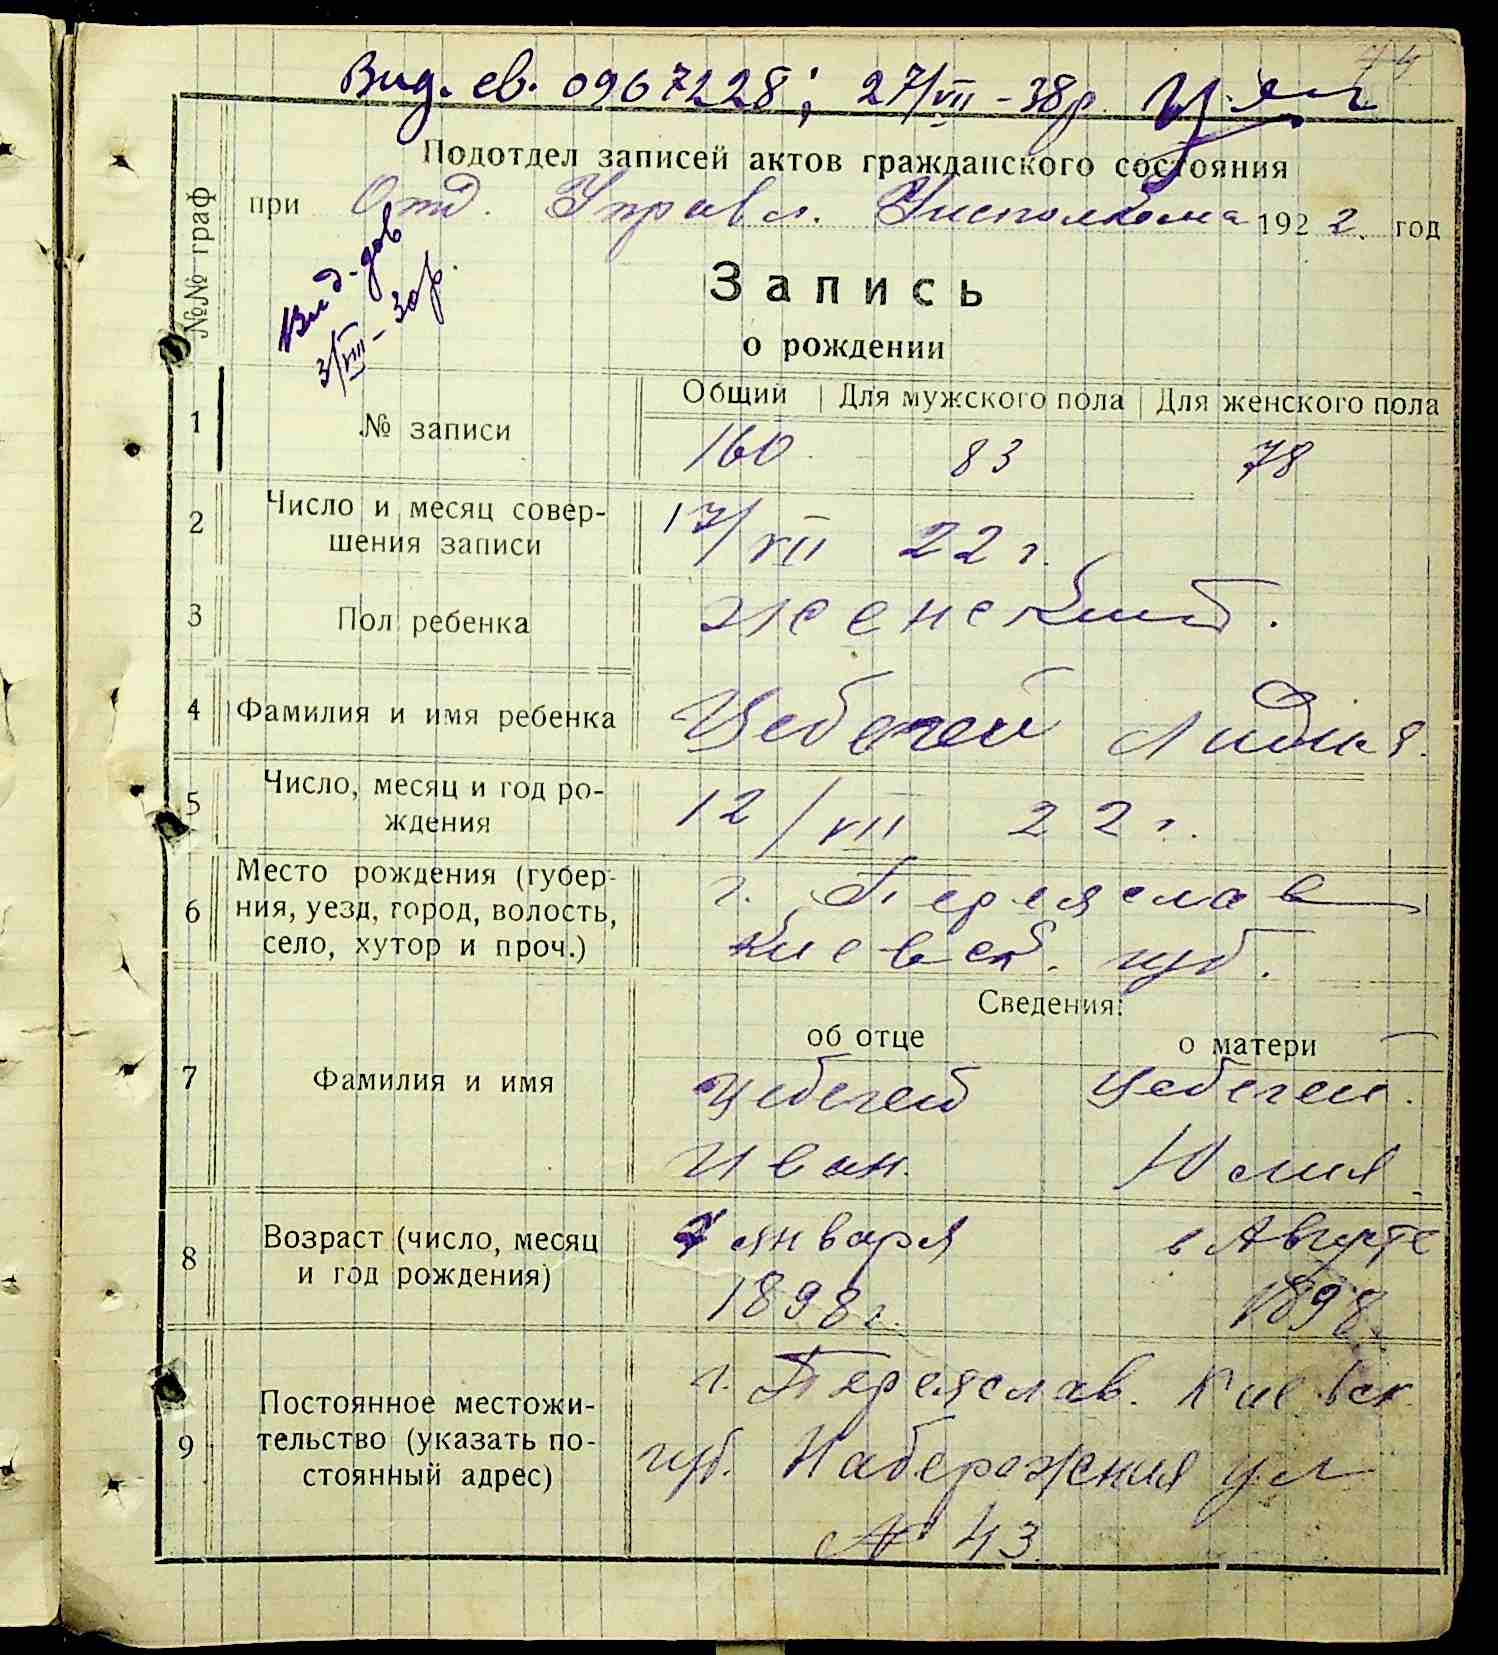 44
Вид. св. 0967228; 27/VII - 38р.
Подотдел записей актов гражданского состояния
при Отд. Управл. Исполкома 1922. год
Вид. дов
3/VIII - 30р.
№№ граф
Запись
о рождении
1 № записи
Общий Для мужского пола Для женского пола
160 83 78
2 Число и месяц совер-
шения записи
17/VII 22 г.
3 Пол ребенка
женский.
4 Фамилия и имя ребенка
Цебегей Лидия.
5 Число, месяц и год ро-
ждения
12/VII 22 г.
6 Место рождения (губер-
ния, уезд, город, волость,
село, хутор и проч.)
г. Переяслав
Киевск. губ.
Сведения:
об отце о матери
7 Фамилия и имя
Цебегей Цебегей.
Иван. Юлия.
8 Возраст (число, месяц
и год рождения)
января в Августе
1898 г. 1898
9 Постоянное местожи-
тельство (указать по-
стоянный адрес)
г. Переяслав. Киевск
губ. Набережная ул
№ 43.